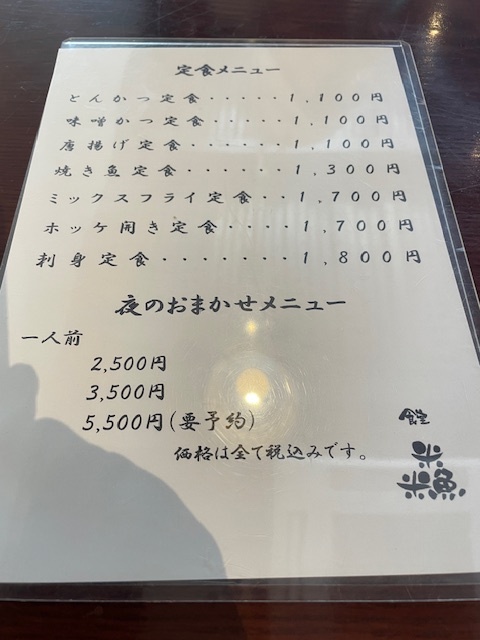 定食メニュー
とんかつ定食・・・・・1,100円
味噌かつ定食・・・・・1,100円
唐揚げ定食・・・・・・1,100円
焼き魚定食・・・・・・1,300円
ミックスフライ定食・・1,700円
ホッケ開き定食・・・・1,700円
刺身定食・・・・・・・1,800円
夜のおまかせメニュー
一人前
2,500円
3,500円
5,500円(要予約)
価格は全て税込みです。
食堂
米
米魚